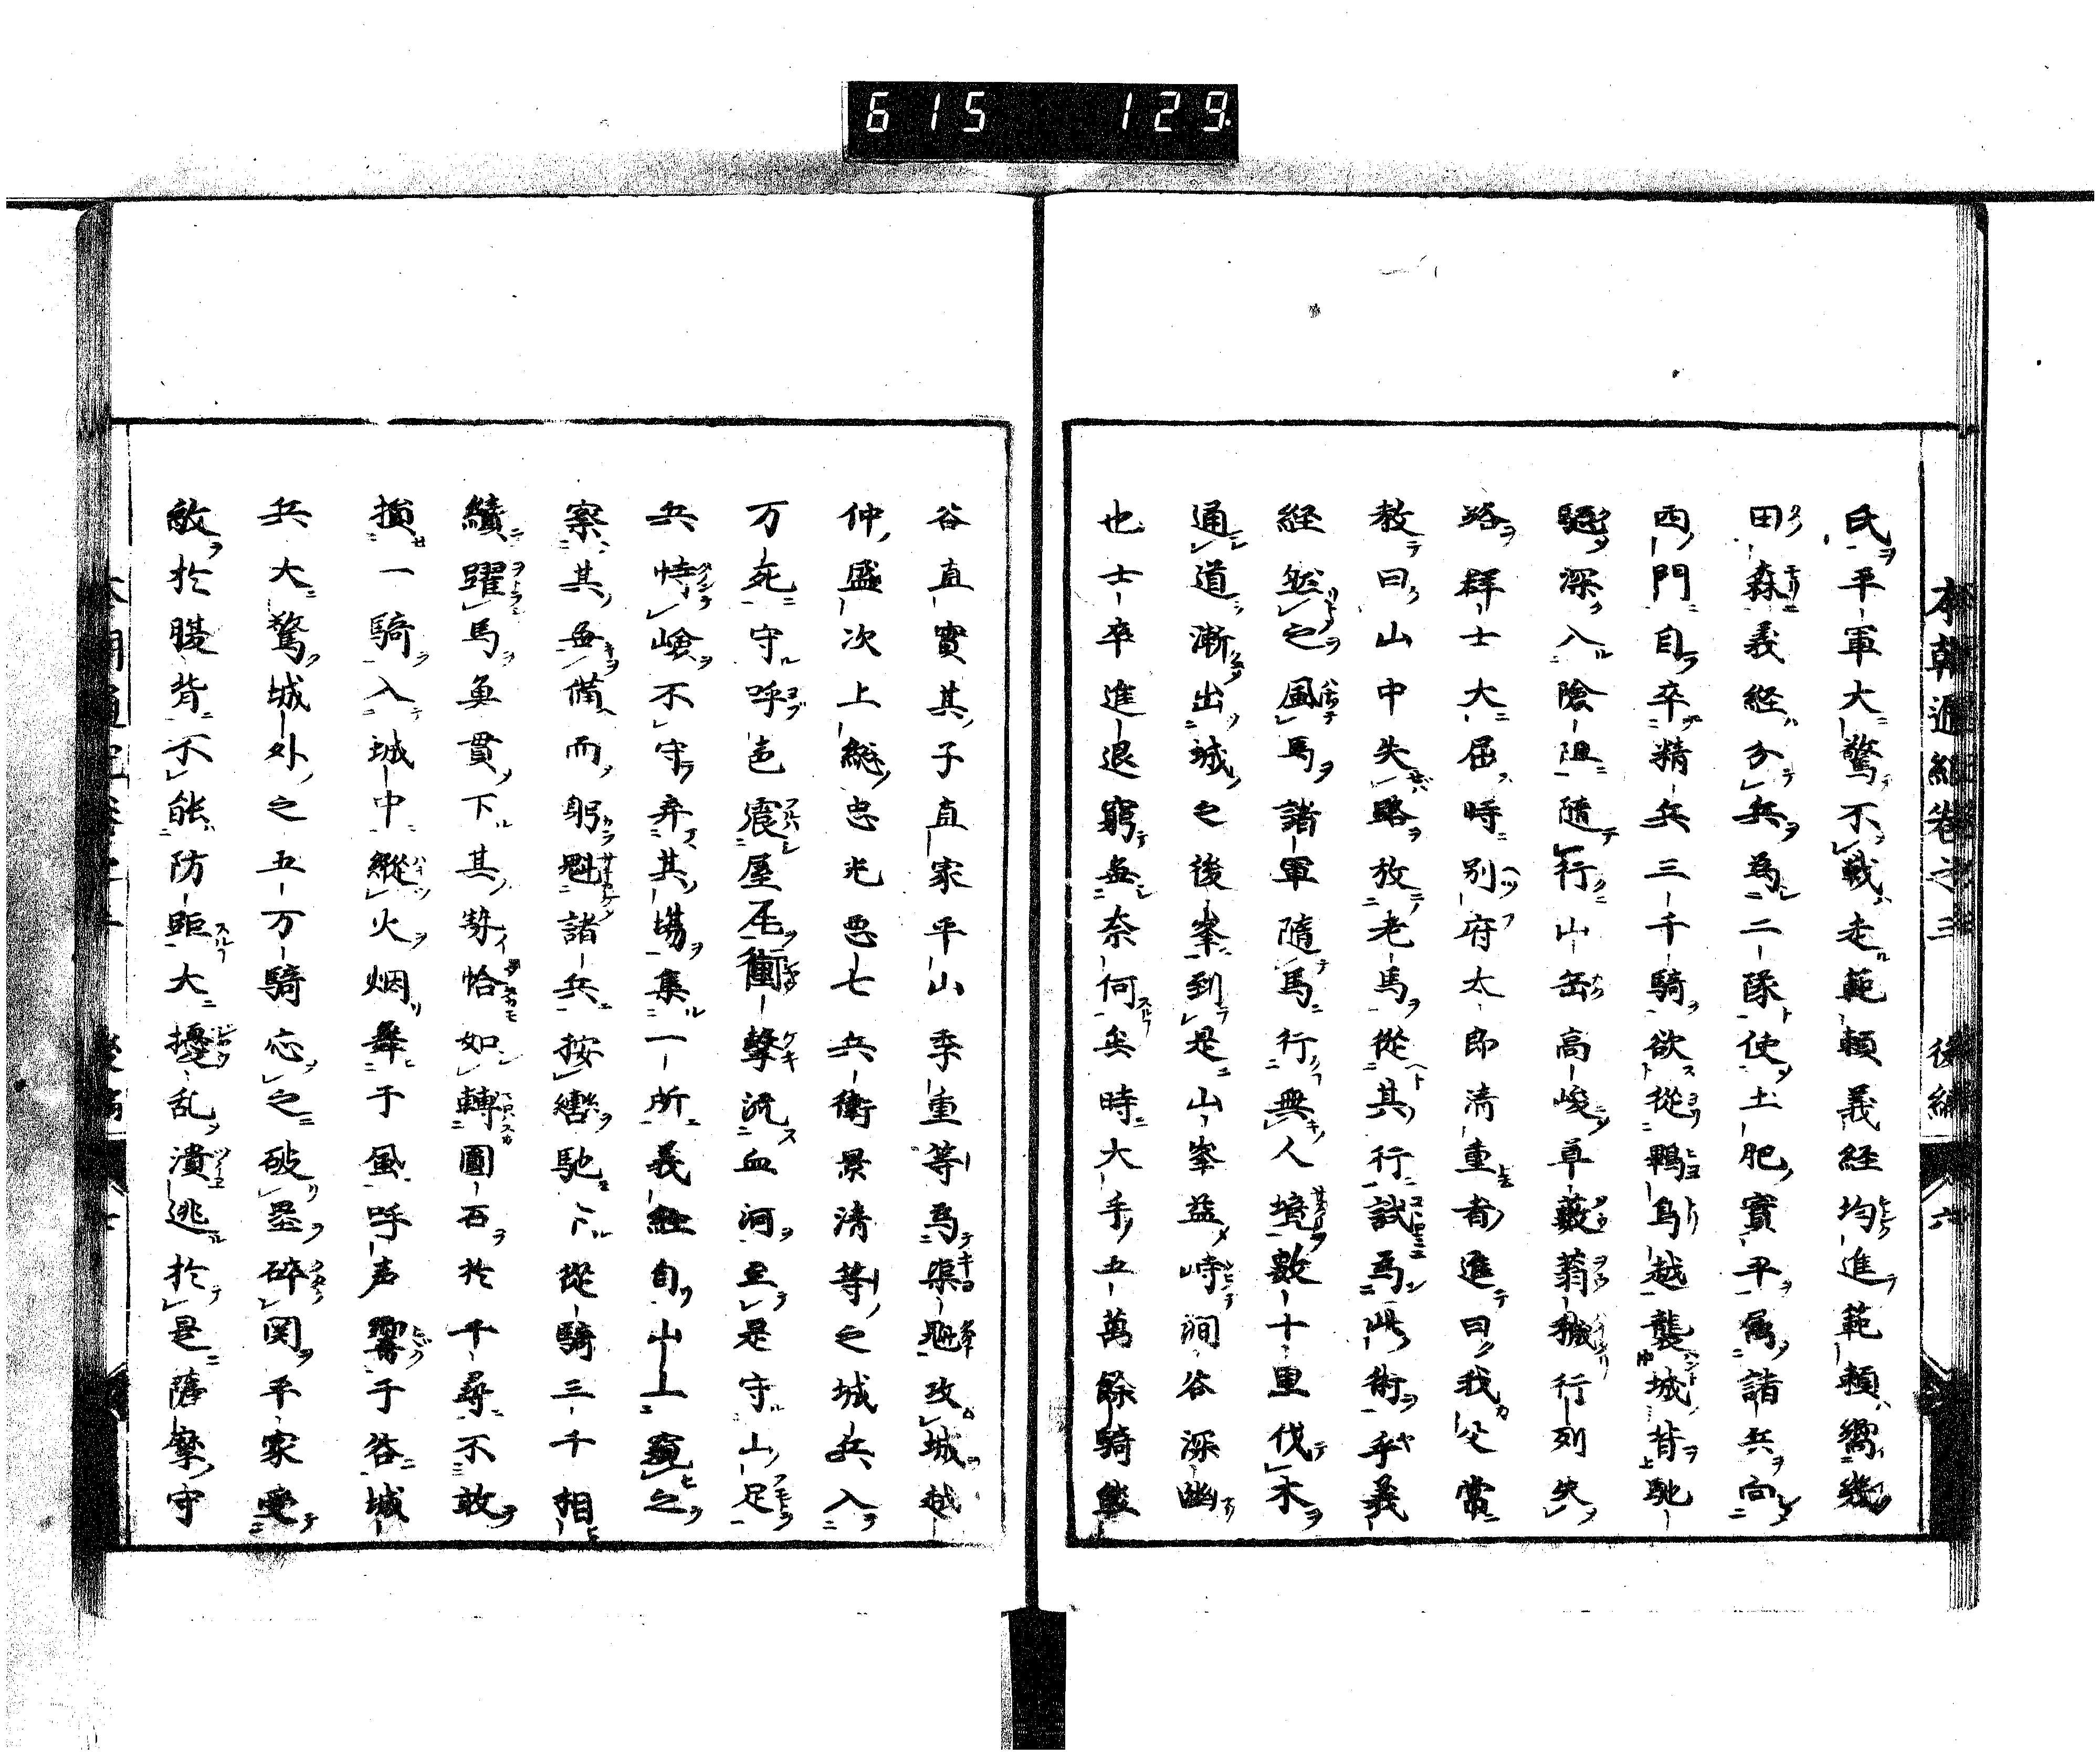 615 129
本朝通紀卷之三 後編 六
氏平軍大驚不戰走範頼義経均進範頼嚮幾
田森義経分兵為二隊使土肥實平属諸兵向
西門自卒精兵三千騎欲從鵯鳥越襲城背馳
驅深入險阻隨行山缶高峻草薮蓊穢行列失
路群士大屈時別府太郎清重者進曰我父常
教曰山中失路放老馬從其行試為此術乎義
経然之風馬諸軍隨馬行無人境數十里伐木
通道漸出城之後峯到是山峯益峙澗谷深幽
也士卒進退窮無奈何矣時大手五萬餘騎熊
谷直實其子直家平山季重等為渠魁攻城越
仲盛次上総忠光悪七兵衛景清等之城兵入
万死守呼声震屋瓦衝撃流血河至是守山足
兵恃嶮不守弃其場集一所義経自山上窺之
察其無備而躬魁諸兵按轡馳下從騎三千相
續躍馬魚貫下其勢恰如轉圓石於千尋不敢
損一騎入城中縱火烟舞于風呼声響于谷城
兵大驚城外之五万騎応之破塁碎関平家受
敵於腹背不能防距大擾乱潰逃於是薩摩守